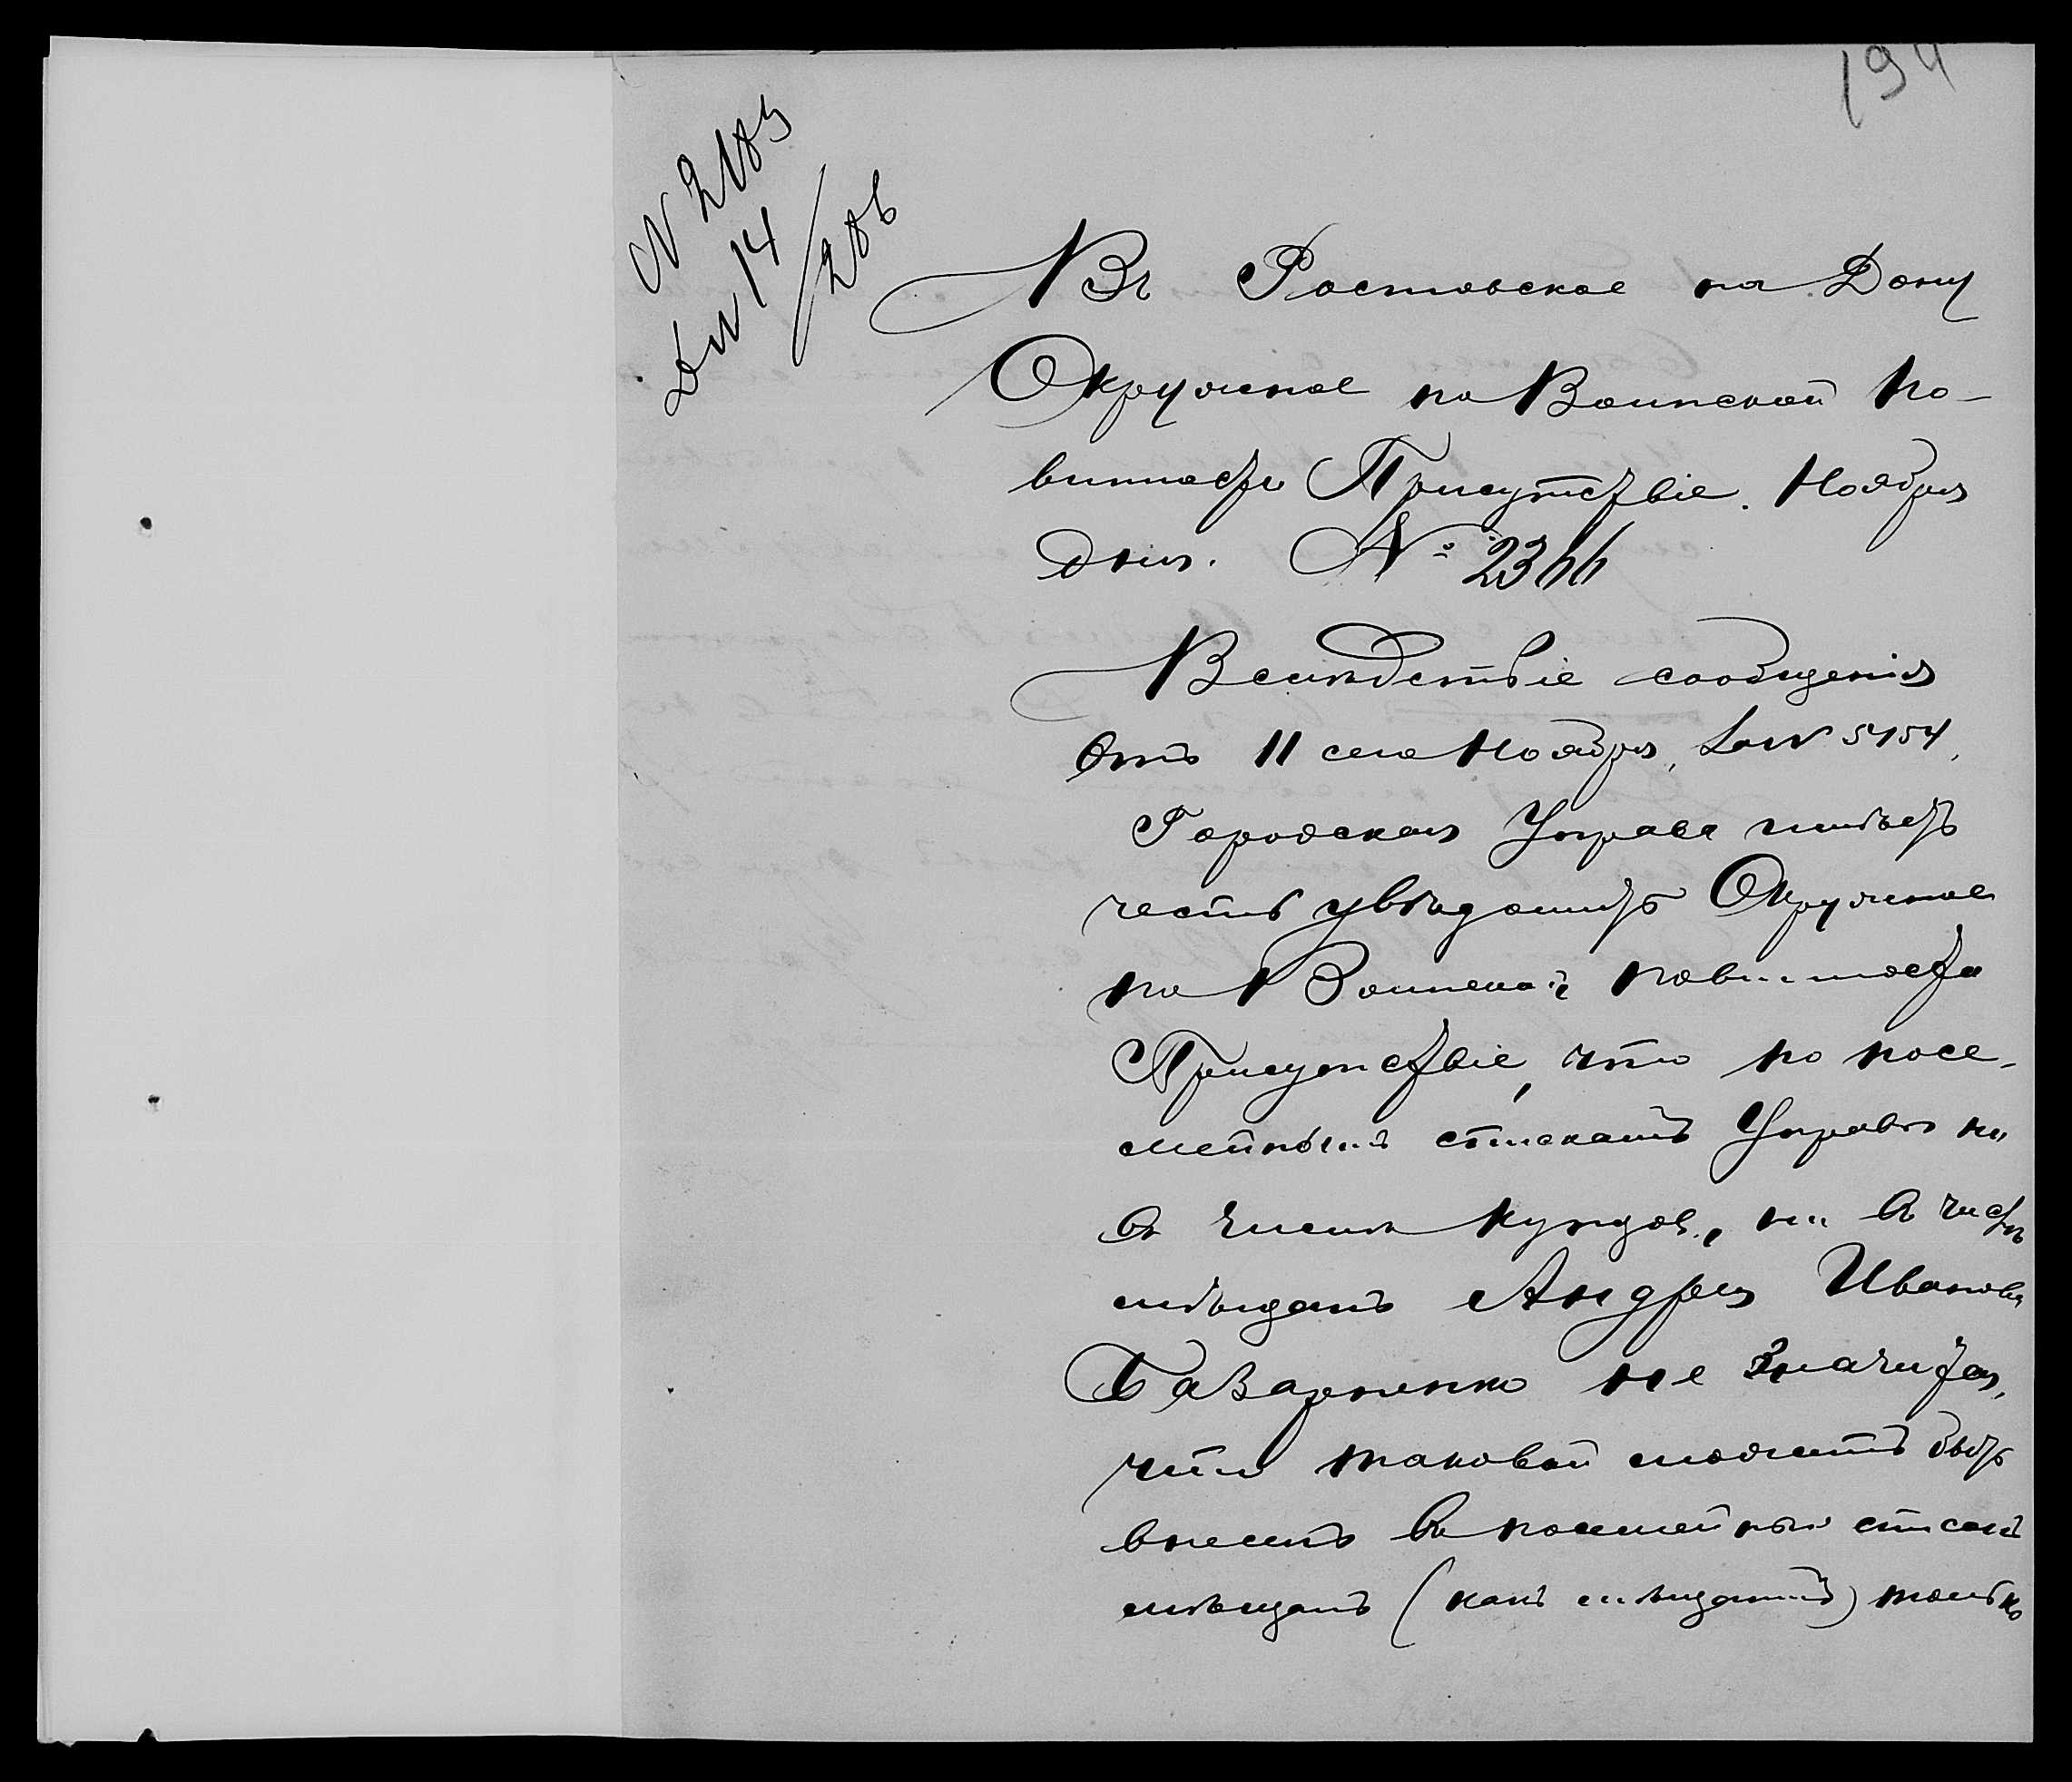 194
N 2183
Д N 14/286
Въ Ростовское на Дону
Окружное по Воинской по-
винности Присутствіе. Ноября
дня. № 2366
Вслѣдствіе сообщенія
отъ 11 сего Ноября, за N 5154,
Городская Управа имѣетъ
честь увѣдомить Окружное
по Воинской повинности
Присутствіе, что по посе-
мейнымъ спискамъ Управы ни
въ числѣ купцовъ, ни въ числѣ
мѣщанъ Андрея Иванова
Базарненко не значится,
что таковой можетъ быть
внесенъ въ посемейный списокъ
мѣщанъ (какъ мѣщанинъ) только